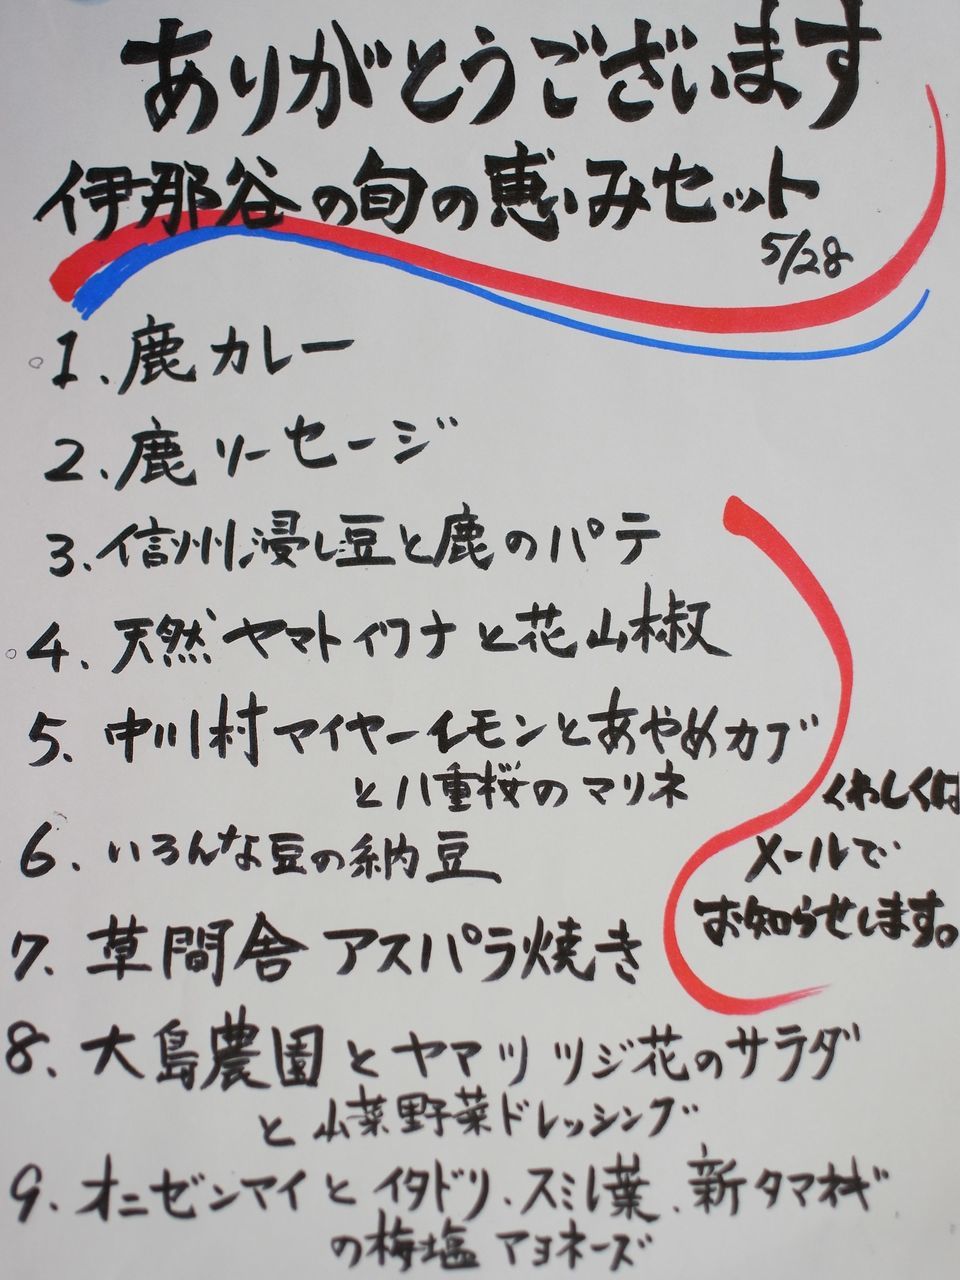 ありがとうございます
伊那谷の旬の恵みセット
5/28
1. 鹿カレー
2. 鹿ソーセージ
3. 信州浸し豆と鹿のパテ
4. 天然ヤマトイワナと花山椒
5. 中川村マイヤーレモンとあやめカブ
と八重桜のマリネ
6. いろんな豆の納豆
7. 草間舎アスパラ焼き
8. 大島農園とヤマツツジ花のサラダ
と山菜野菜ドレッシング
9. オニゼンマイとイタドリ、スミレ葉、新タマネギ
の梅塩マヨネーズ
くわしくは
メールで
お知らせします。